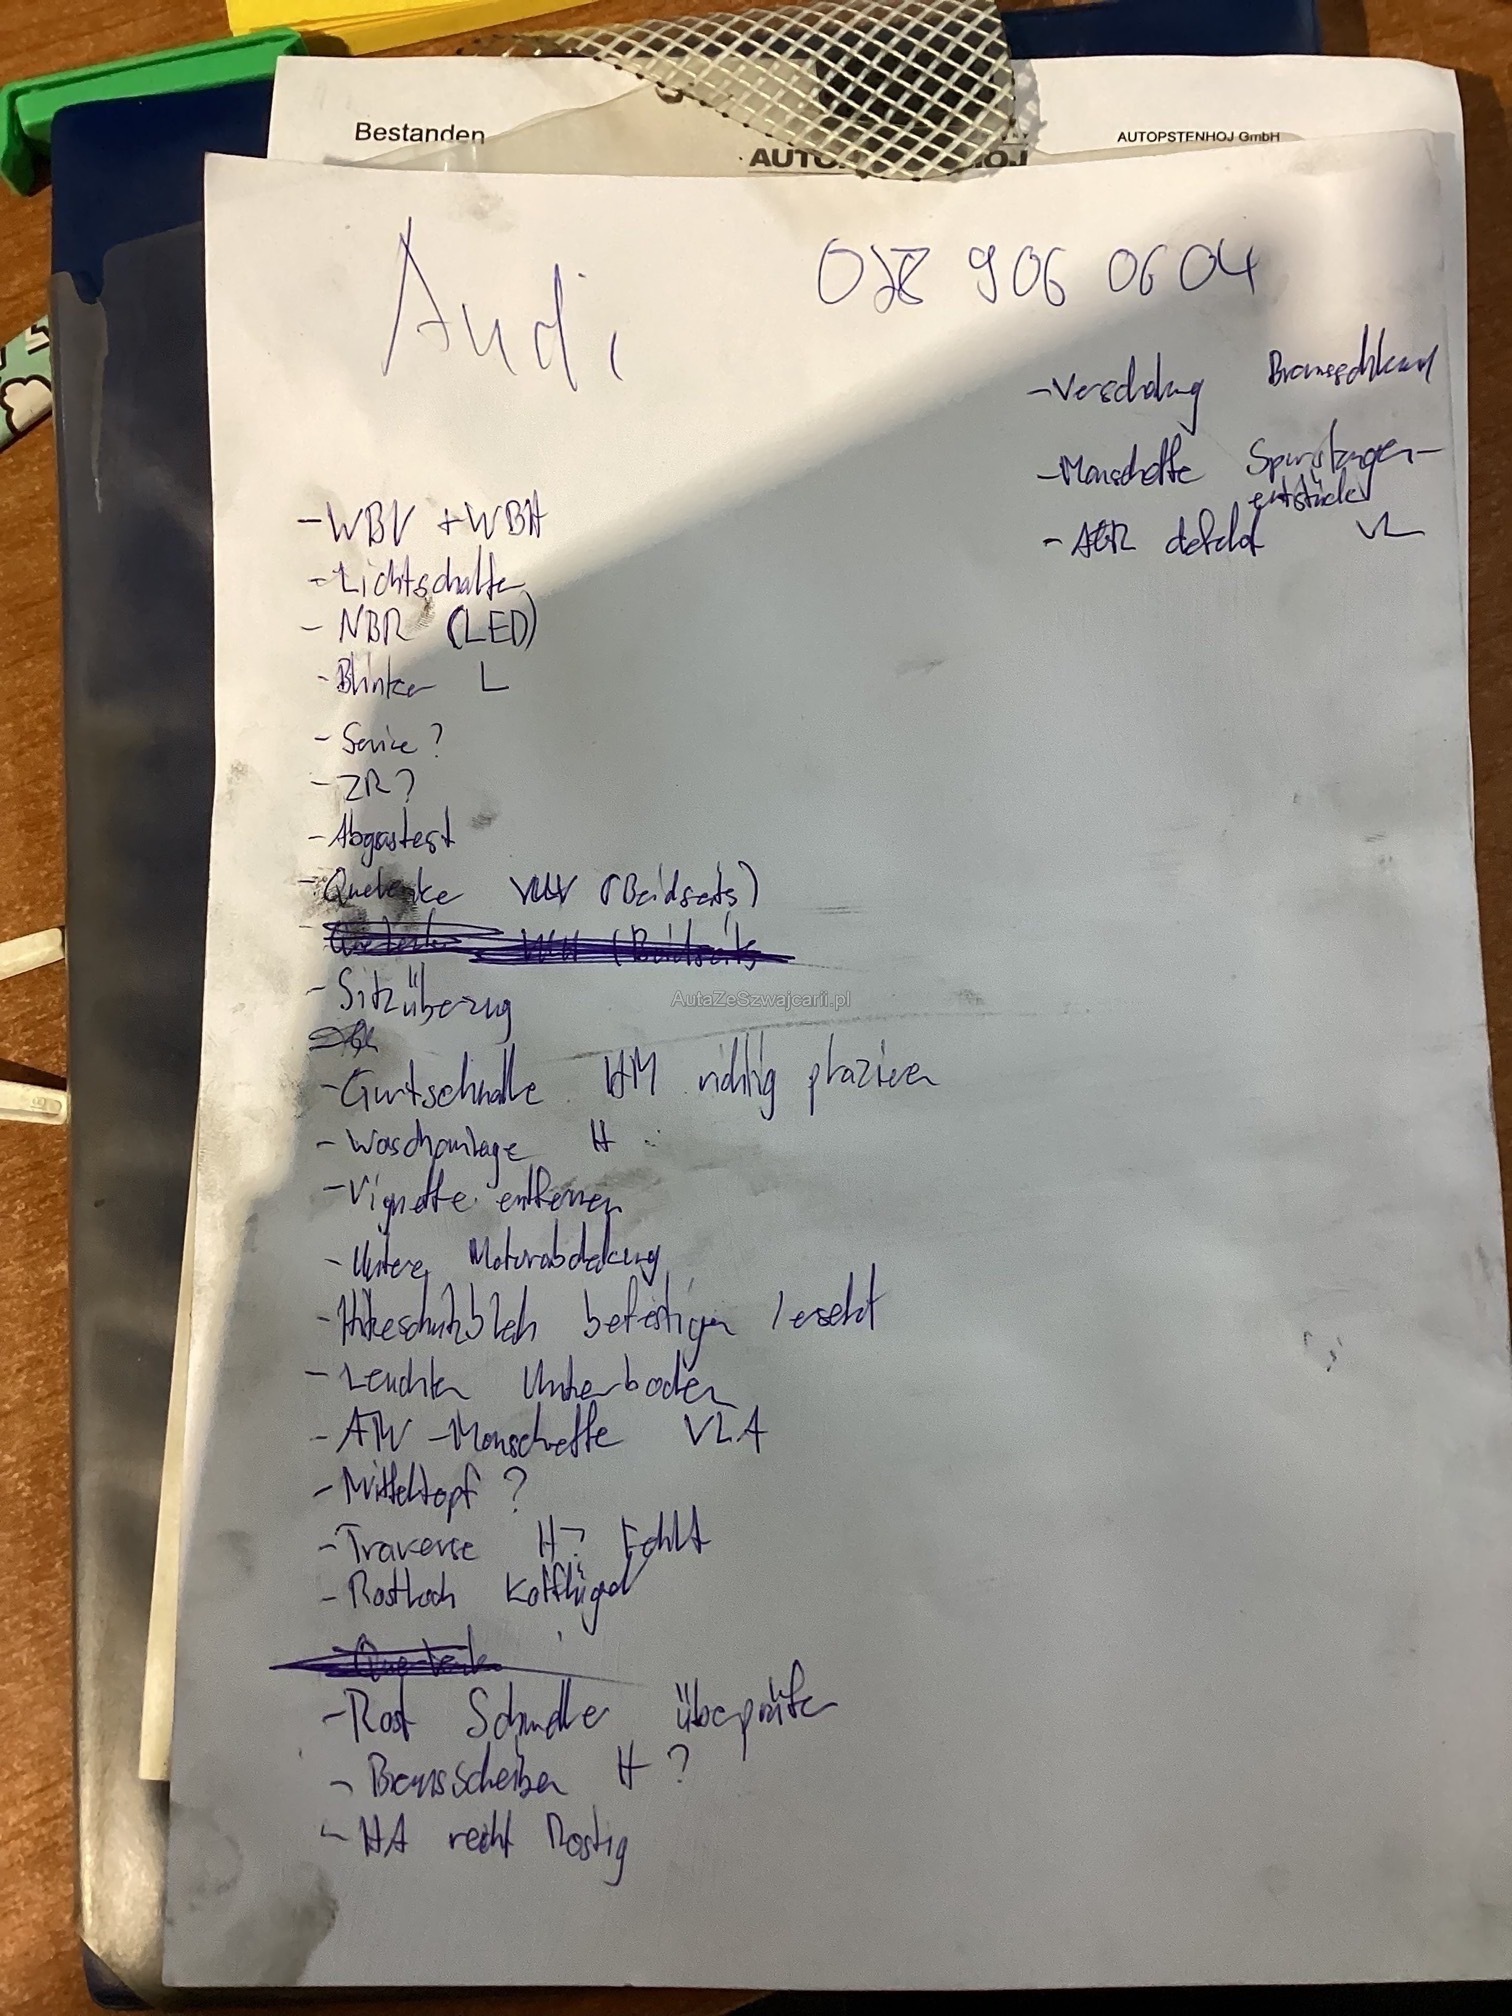 Bestanden
AUTO HOJ
AUTOPSTENHOJ GmbH
Audi 078 906 0604
- Verschalung Bremsschlauch
- Manschette Spurstangen-
entstücke VL
- AGR defekt
- WBV + WBH
- Lichtschalter
- NBR (LED)
- Blinker L
- Service?
- ZR?
- Abgastest
- Querlenke (Beidseits)
- Sitzüberzug
- Gurtschnalle HM richtig plazieren
- Waschanlage H
- Vignette entfernen
- Untere Motorabdekung
- Hitzeschutzblech befestigen / ersetzt
- Leuchten Unterboden
- ATW-Manschette VLA
- Mitteltopf?
- Traverse H? Fehlt
- Rostloch Kotflügel
- Rost Schweller überprüfen
- Bremsscheiben H?
- HA recht Rostig
AutaZeSzwajcarii.pl